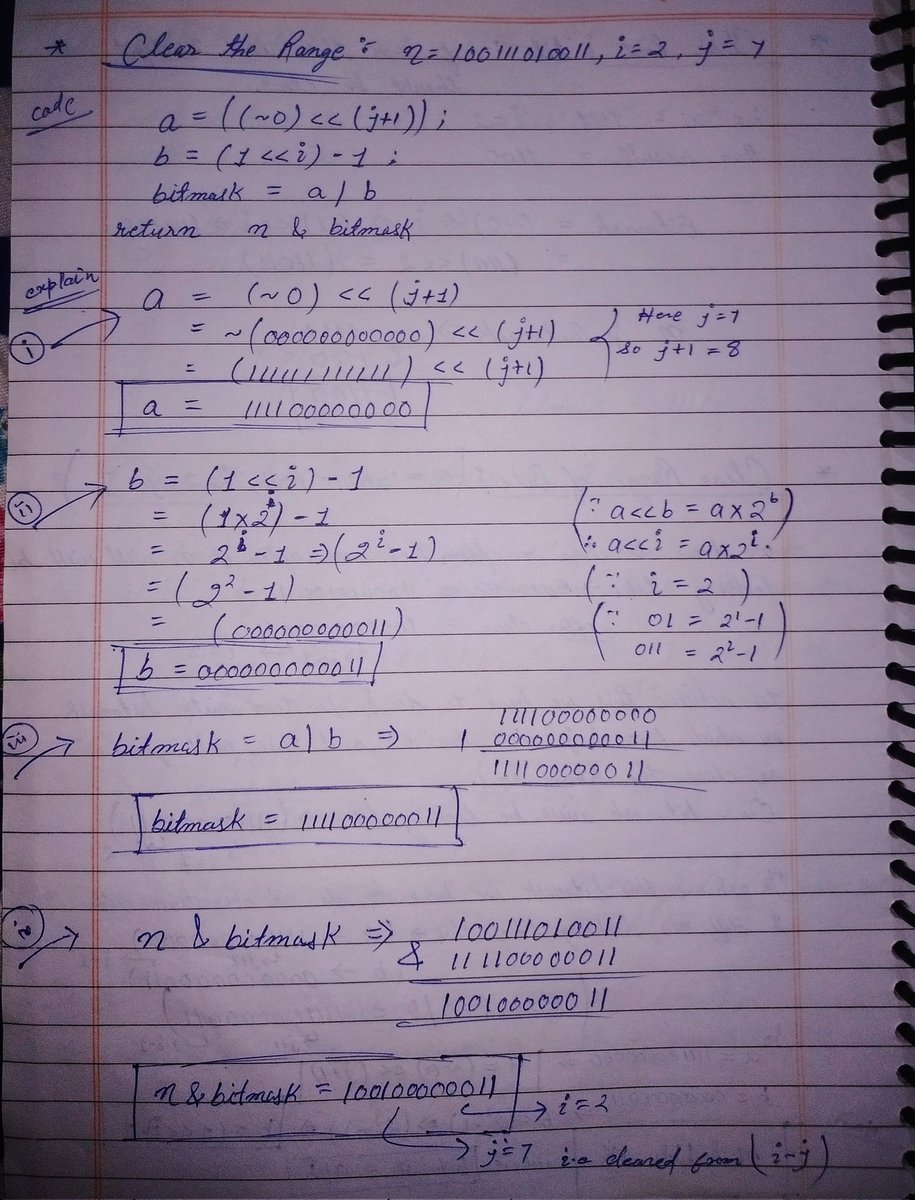 * Clear the Range :- n = 10011010011, i=2, j=7
code
a = ((~0) << (j+1));
b = (1 << i) - 1 ;
bitmask = a | b
return n & bitmask
explain
i
a = (~0) << (j+1)
= ~(000000000000) << (j+1)
Here j=7
so j+1 = 8
= (111111111111) << (j+1)
a = 111100000000
ii
b = (1 << i) - 1
= (1x2^i) - 1
(∵ a<<b = a x 2^b)
= 2^i - 1 => (2^i - 1)
∴ a<<i = a x 2^i.
= (2^2 - 1)
(∵ i = 2 )
= (000000000011)
(∵ 01 = 2^1 - 1
011 = 2^2 - 1 )
b = 000000000011
iii
bitmask = a | b =>
111100000000
| 000000000011
111100000011
bitmask = 111100000011
n & bitmask =>
100111010011
& 111100000011
100100000011
n & bitmask = 100100000011
i=2
j=7 i.e cleared from (i-j)